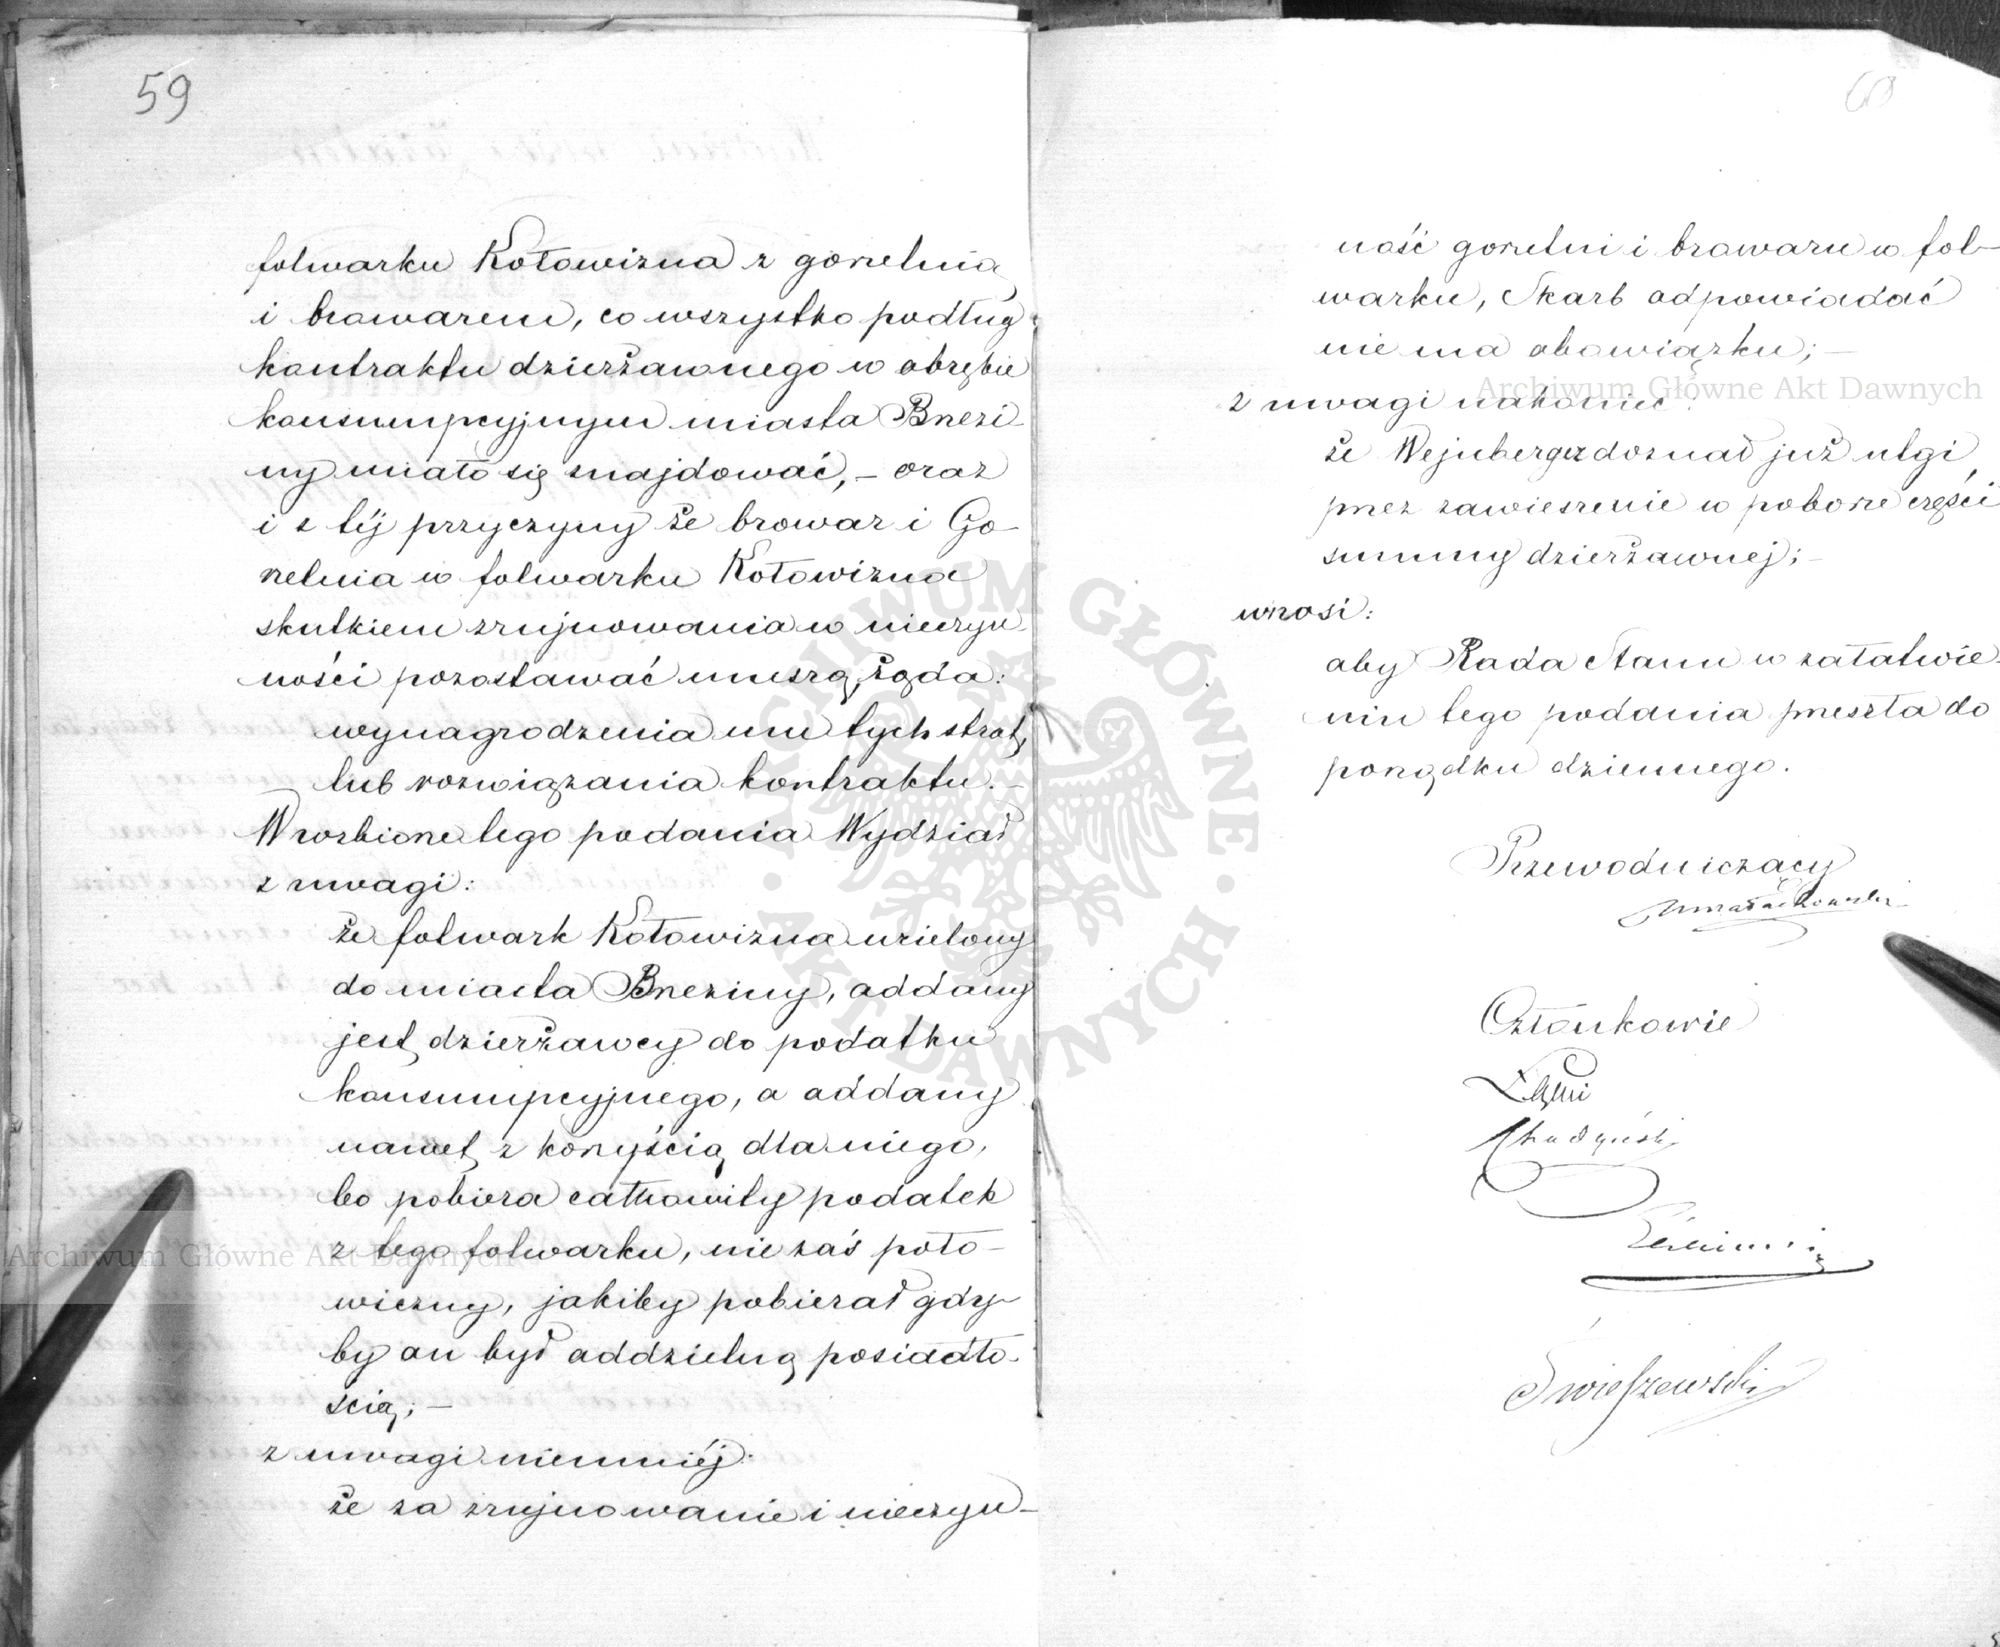 59
folwarku Kotowizna z gorzelnią
i browarem, co wszystko podług
kontraktu dzierżawnego w obrębie
konsumpcyjnym miasta Brzezi-
ny miało się znajdować, – oraz
i z téj przyczyny że browar i Go-
rzelnia w folwarku Kotowizna
skutkiem zrujnowania w nieczyn-
ności pozostawać muszą, żąda:
wynagrodzenia mu tych strat,
lub rozwiązania kontraktu. –
W rozbiorze tego podania Wydział
z uwagi:
że folwark Kotowizna wcielony
do miasta Brzeziny, oddany
jest dzierżawcy do podatku
konsumpcyjnego, a oddany
nawet z korzyścią dla niego,
bo pobiera całkowity podatek
z tego folwarku, nie zaś poło-
wiczny, jakiby pobierał gdy-
by on był oddzielną posiadło-
ścią; –
z uwagi niemniéj:
że za zrujnowanie i nieczyn-
60
ność gorzelni i browaru w fol-
warku, Skarb odpowiadać
nie ma obowiązku; –
z uwagi nakoniec:
że Wejnberger doznał już ulgi
przez zawieszenie w poborze części
summy dzierżawnej; –
wnosi:
aby Rada Stanu w załatwie-
niu tego podania przeszła do
porządku dziennego.
Przewodniczący
Członkowie
Chudzyński
Świeszewski
Archiwum Główne Akt Dawnych
Archiwum Główne Akt Dawnych
ARCHIWUM GŁÓWNE
AKT DAWNYCH